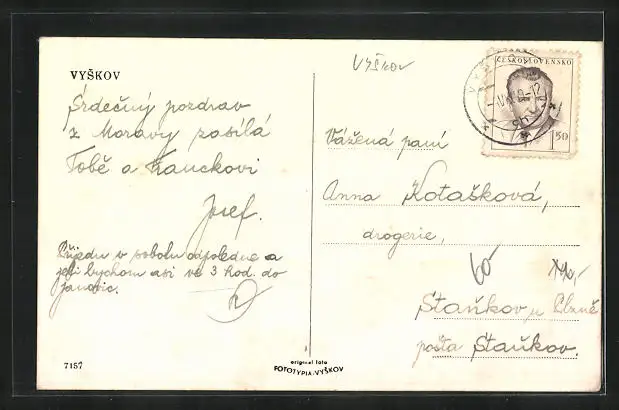 VYŠKOV
Srdečný pozdrav
z Moravy zasílá
Tobě a Hanckovi
Josef.
Přijedu v sobotu odpoledne a
jeli bychom asi ve 3 hod. do
Janovic.
7157
original foto
FOTOTYPIA-VYŠKOV
Vyškov
ČESKOSLOVENSKO
1.50
Vážená paní
Anna Kotašková,
drogerie,
60-
Staňkov u Plzně
pošta Staňkov.